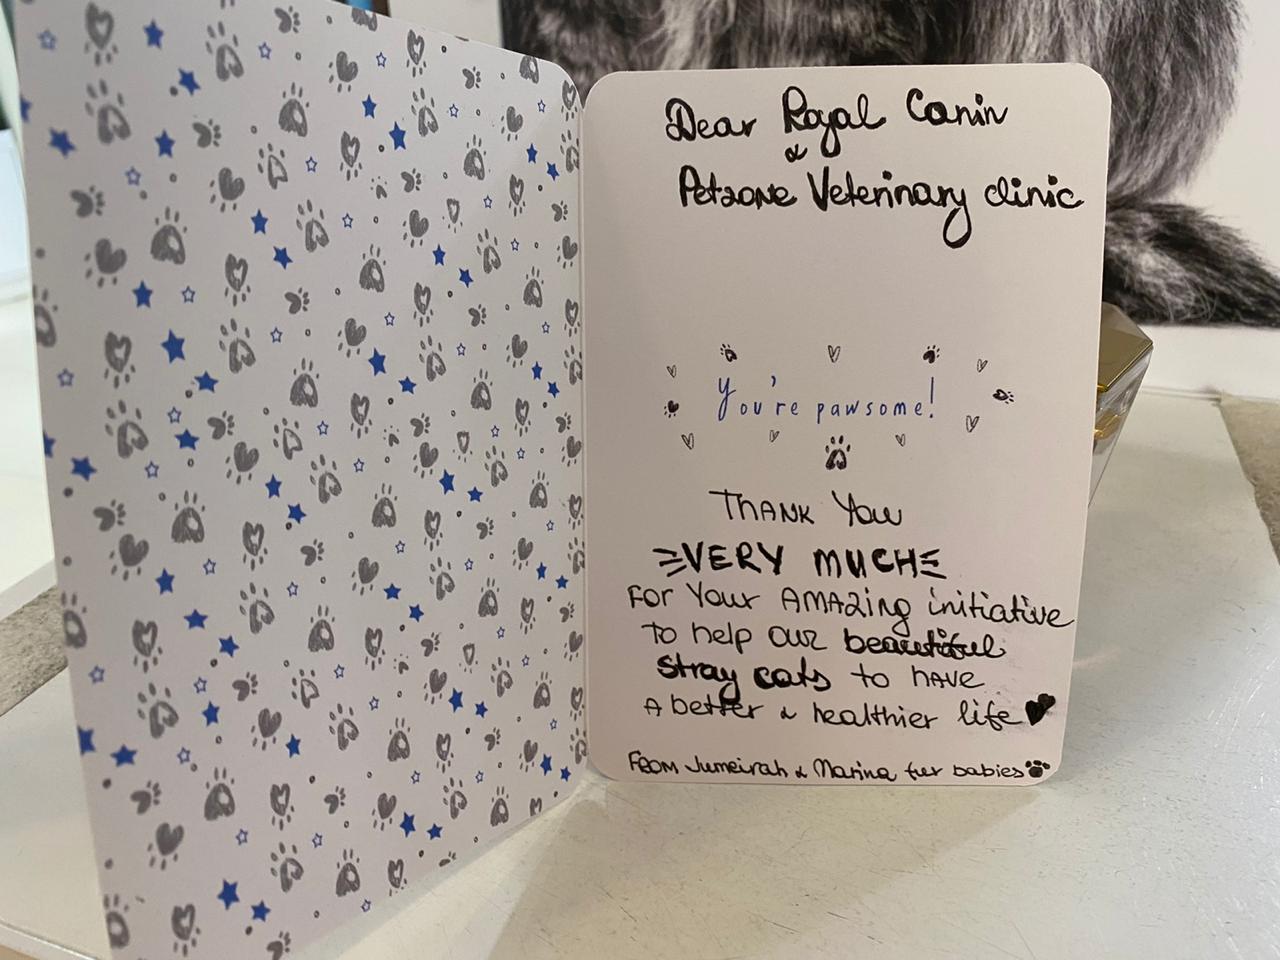 Dear Royal Canin
&
Petzone Veterinary clinic
You're pawsome!
THANK YOU
VERY MUCH
FOR YOUR AMAZING initiative
to help our beautiful
stray cats to HAVE
A better & healthier life
FROM Jumeirah & Marina fur babies